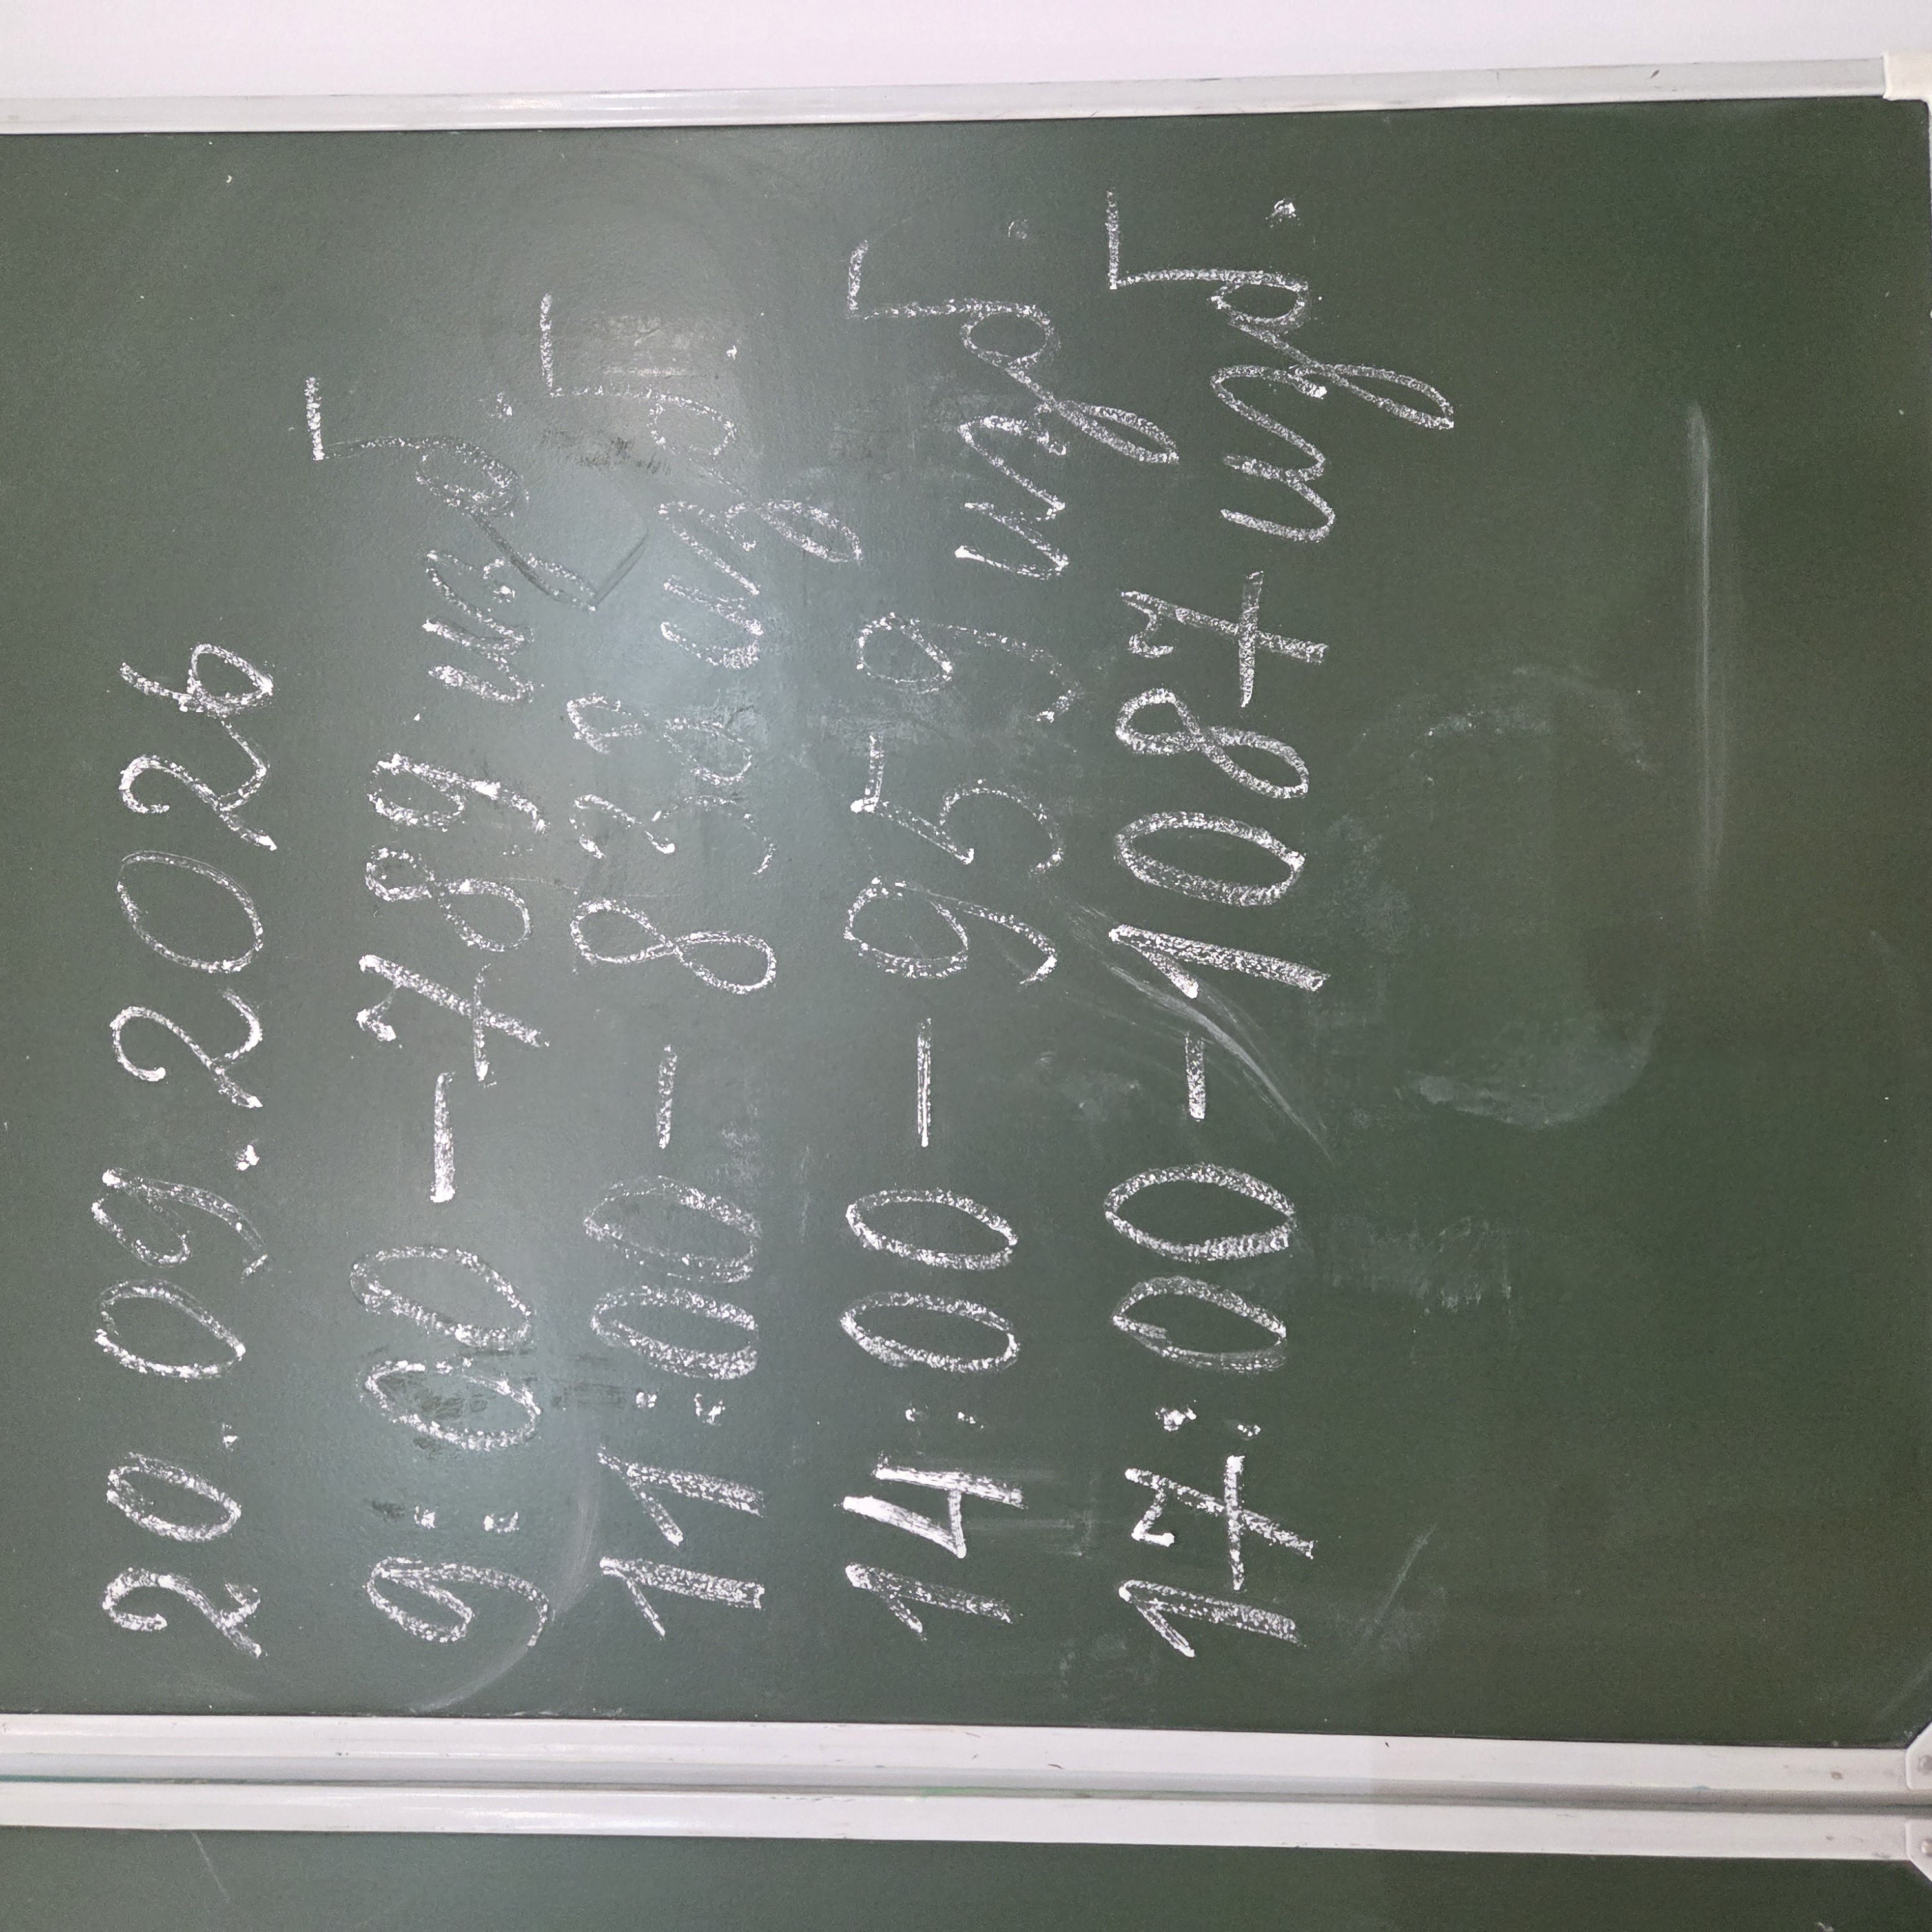 20.09.2026
9:00 - 789 изб.
11:00 - 838 изб.
14:00 - 959 изб.
17:00 - 1087 изб.